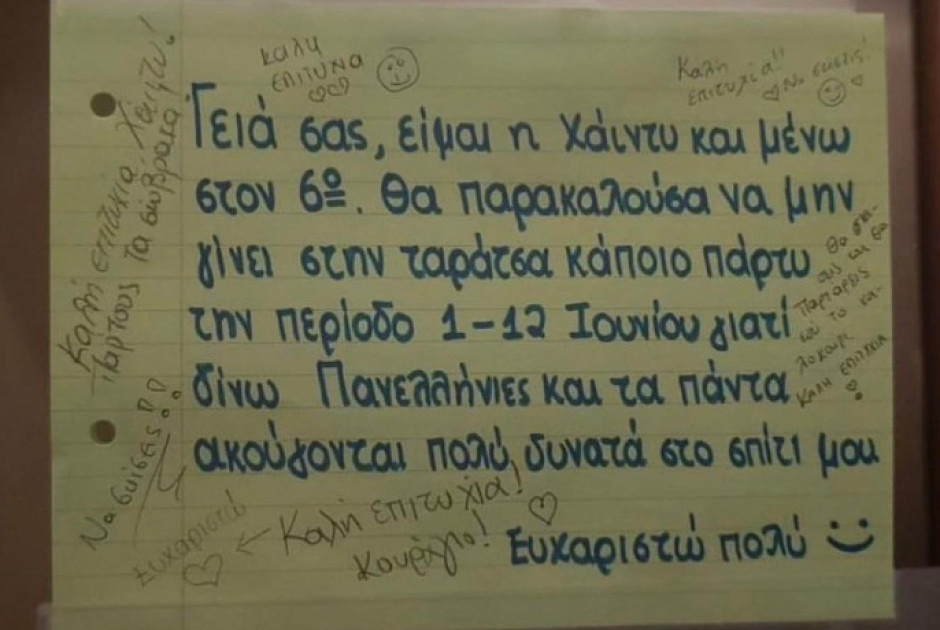 καλη
επιτυχια
Καλή
επιτυχία!!
Να σκίσεις!
Γειά σας, είμαι η Χάιντυ και μένω
στον 6º. Θα παρακαλούσα να μην
γίνει στην ταράτσα κάποιο πάρτυ
την περίοδο 1-12 Ιουνίου γιατί
δίνω Πανελλήνιες και τα πάντα
ακούγονται πολύ δυνατά στο σπίτι μου
Ευχαριστώ πολύ
Θα
εις και θα
παρταρεις
το κα-
λοκαίρι
καλη επιτυχια
Καλή επιτυχία Χάιντυ!
Παρτους τα σώβρακα
Να σκίσεις!!
Ευχαριστώ
← Καλή επιτυχία!
Κουράγιο!